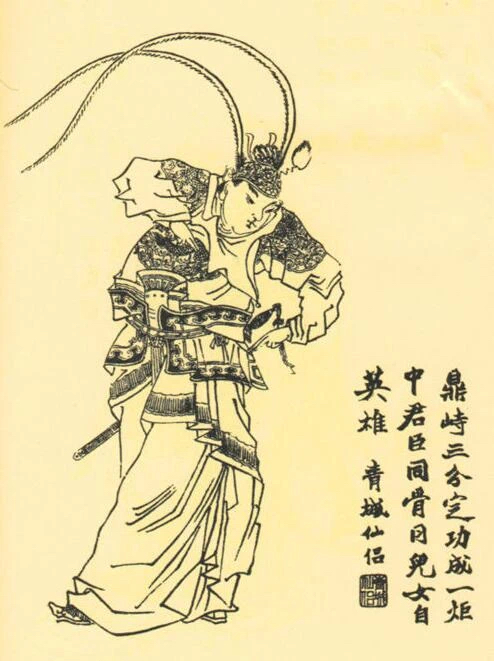 鼎峙三分定功成一炬
中君臣同骨肉兒女自
英雄　青城仙侶